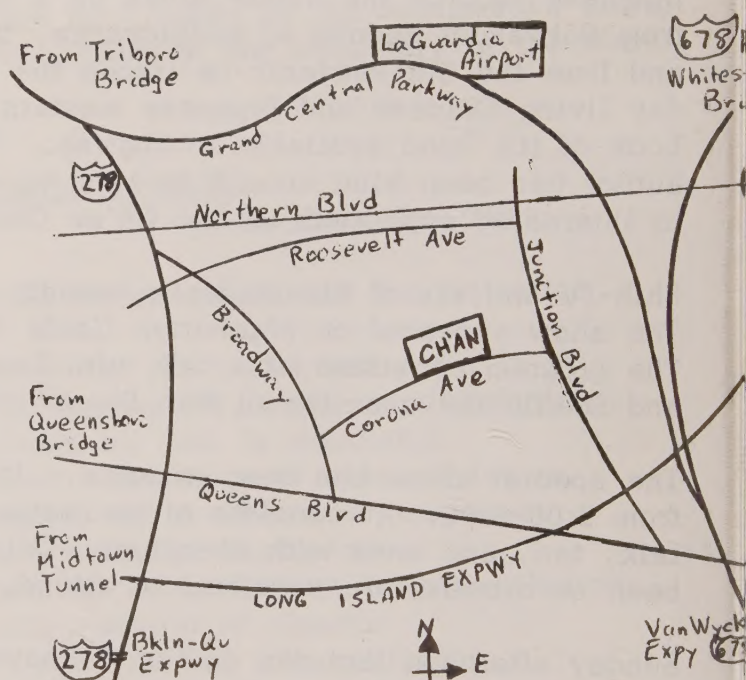 From Triboro
Bridge
LaGuardia
Airport
678
Whites
Br
Grand Central Parkway
278
Northern Blvd
Roosevelt Ave
Junction Blvd
Broadway
CH'AN
Corona Ave
From
Queensboro
Bridge
Queens Blvd
From
Midtown
Tunnel
LONG ISLAND EXPWY
278 = Bkln-Qu
Expwy
N
E
Van Wyck
Expy 678